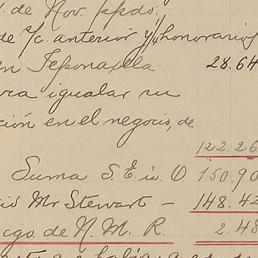 de Nov. ppdo.
de c/c anterior y honorarios
en Teponaxtla 28.64
para igualar su
ción en el negocio, de
122.26
Suma S.E. ú O. 150.90
Mr Stewart - 148.42
cargo de N. M. R. 2.48